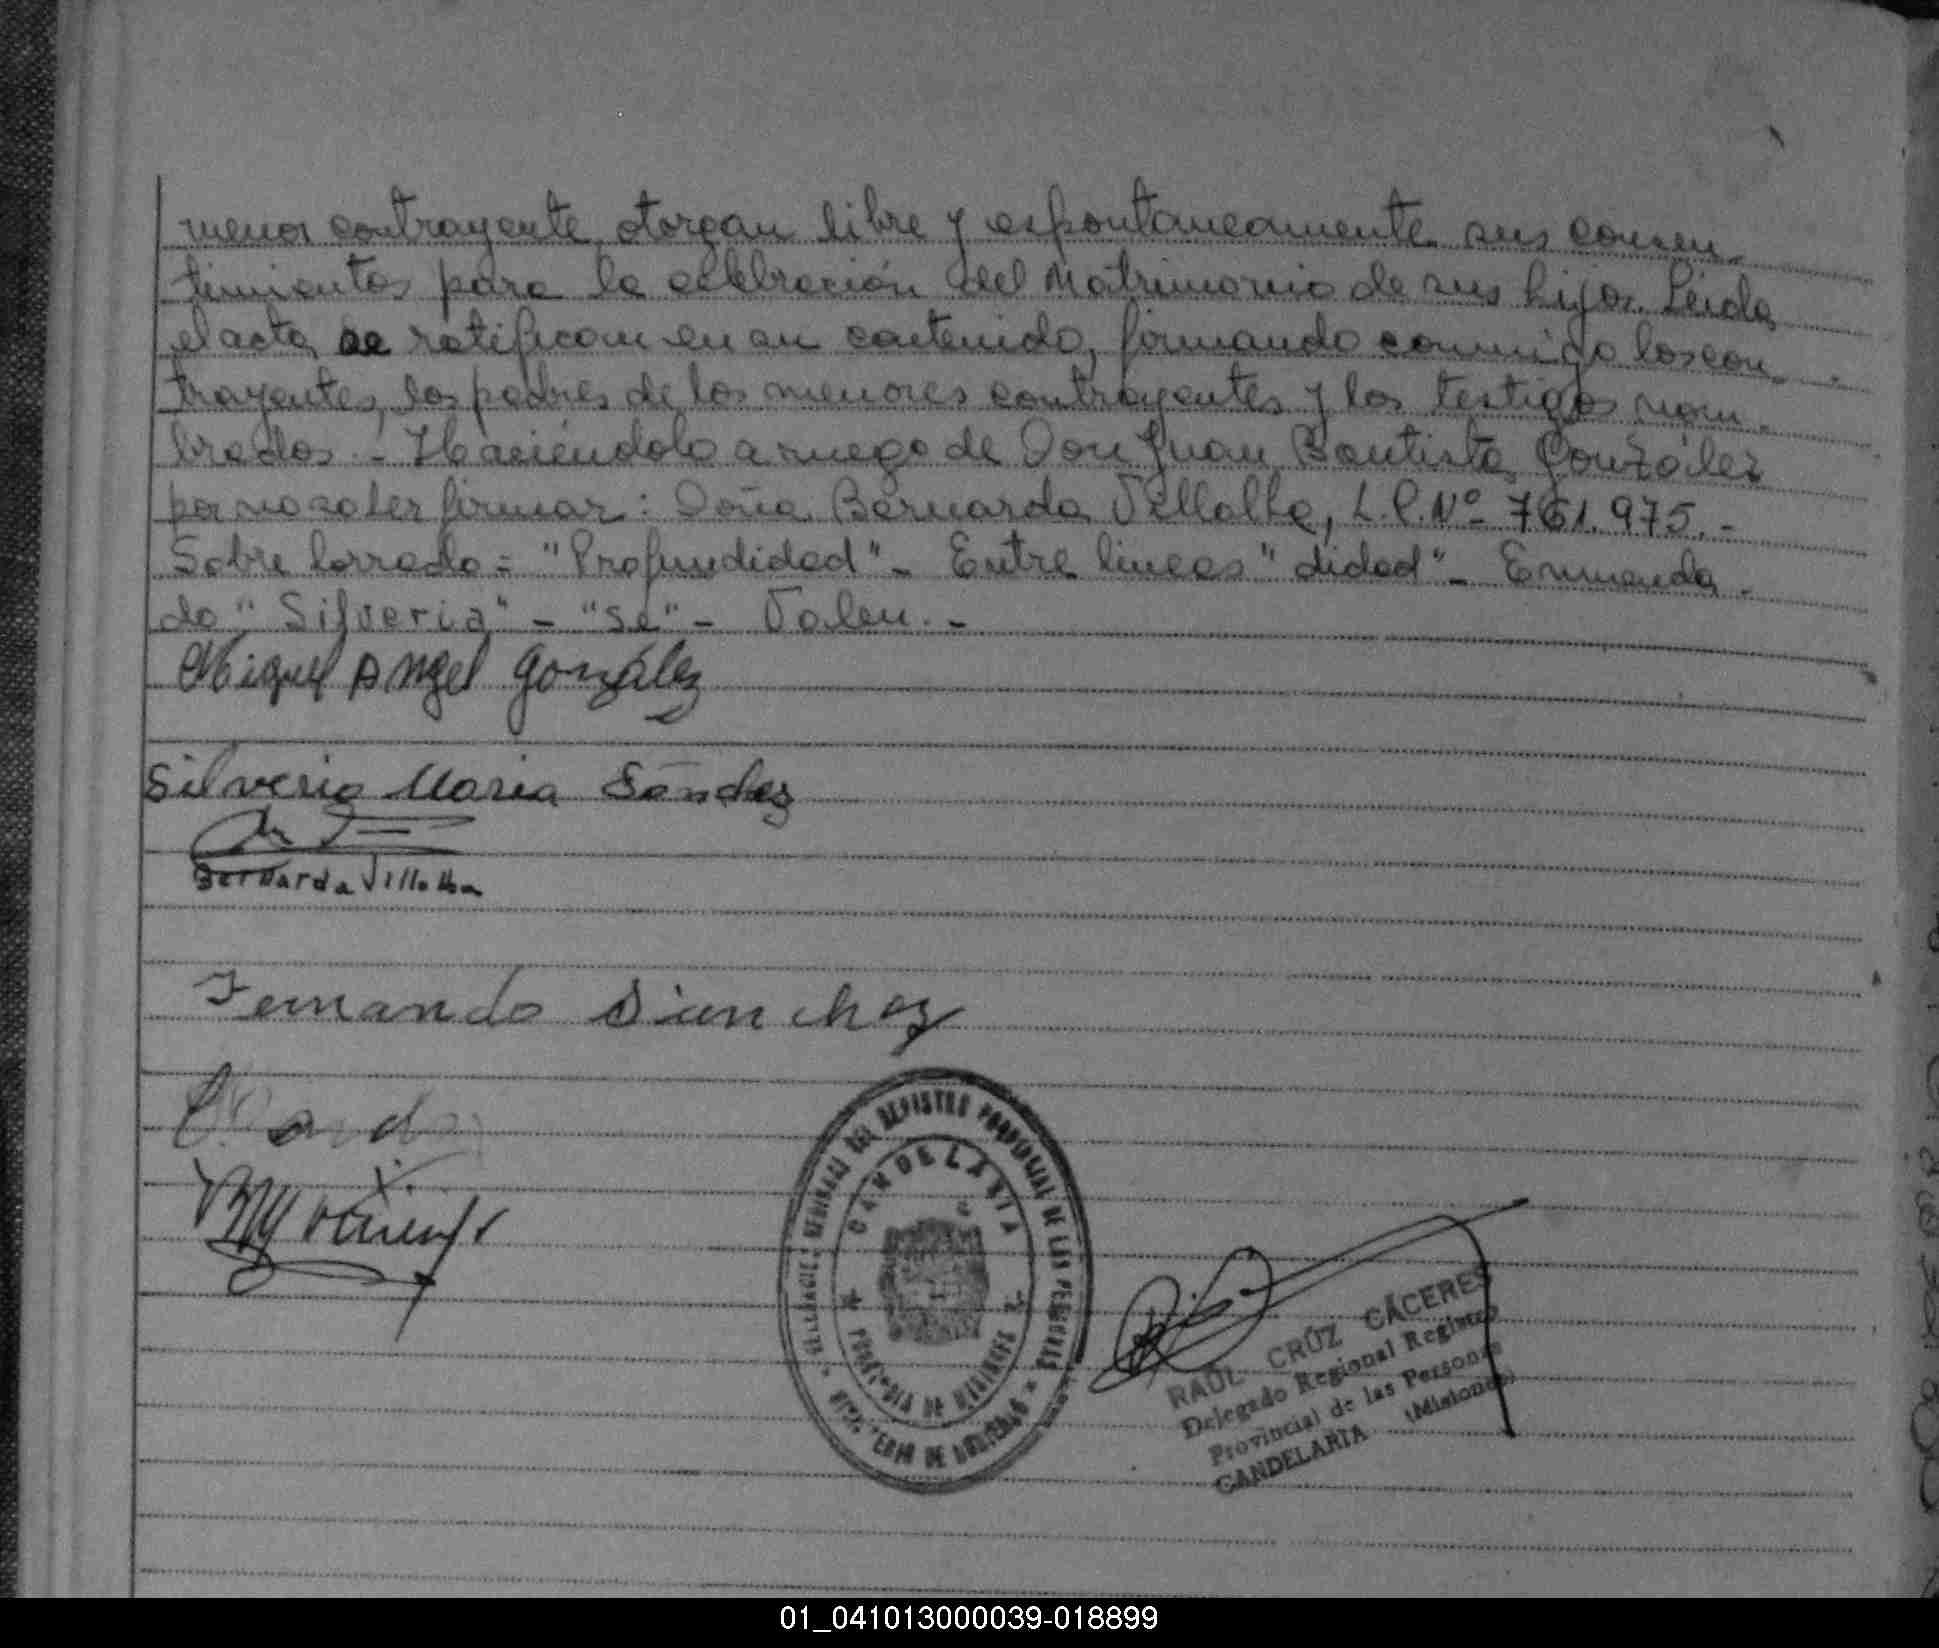 menor contrayente, otorgan libre y espontaneamente sus consen-
timientos para la celebración del Matrimonio de sus hijos. Leida
el acta, se ratifican en su contenido, firmando conmigo los con-
trayentes, los padres de los menores contrayentes y los testigos nom-
brados.- Haciéndolo a ruego de Don Juan Bautista González
por no saber firmar: Doña Bernarda Villalba, L.C. Nº 761.975.-
Sobre borrado = "Profundidad" - Entre lineas "didad" - Enmenda-
do "Silveria" - "se" - Valen.-
Miguel Angel González
Silveria Maria Sánchez
Bernarda Villalba
Fernando Sanchez
DELEGACION REGIONAL DEL REGISTRO PROVINCIAL DE LAS PERSONAS
CANDELARIA
PROVINCIA DE MISIONES
MINISTERIO DE GOBIERNO
RAÚL CRÚZ CÁCERES
Delegado Regional Registro
Provincial de las Personas
CANDELARIA (Misiones)
01_041013000039-018899